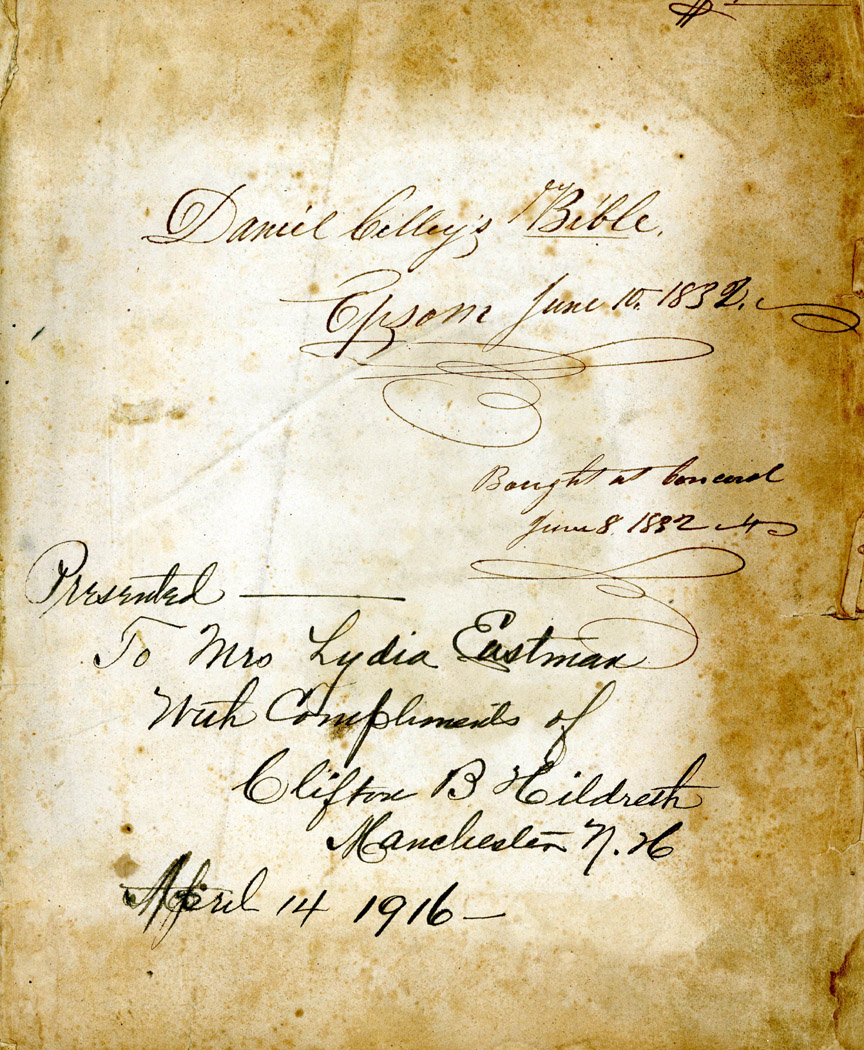 Daniel Cilley's Bible.
Epsom June 10. 1832.
Bought at Concord
June 8. 1832
Presented —
To Mrs Lydia Eastman
With Compliments of
Clifton B Hildreth
Manchester N. H
April 14 1916 —